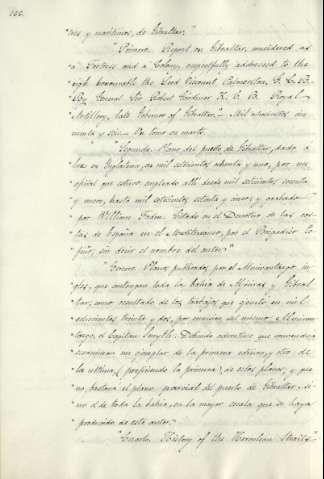 "res y marítimos, de Gibraltar."
"Primero. Report on Gibraltar, considered as
"a Fortress and a Colony, respectfully addressed to the
"right honourable the Lord Viscount Palmerston, K. G. B.
"By General Sir Robert Gardiner K. C. B. Royal
"Artillery, late Governor of Gibraltar. Mil ochocientos cin
"cuenta y seis. Un tomo en cuarto.
"Segundo. Plano del puerto de Gibraltar, dado a
"luz en Inglaterra, en mil setecientos ochenta y uno, por un
"oficial que estuvo empleado allí desde mil setecientos sesenta
"y nueve, hasta mil setecientos setenta y cinco; y grabado
"por William Faden. Citado en el Derrotero de las cos-
"tas de España en el Mediterráneo, por el Brigadier To-
"fiño, sin decir el nombre del autor."
"Tercero. Planos publicados por el Almirantazgo, in
"glés, que contengan toda la bahía de Algeciras y Gibral
"tar, como resultado de los trabajos que ejecutó en mil
"ochocientos treinta y dos, por comisión del mismo Almiran-
"tazgo, el Capitán Smyth. Debiendo advertirse que convendría
"examinar un ejemplar de la primera edición, y otro de
"la última, (prefiriendo la primera), de estos planos; y que
"no, bastará el plano, parcial del puerto de Gibraltar, si
"no el de toda la bahía, en la mayor escala que se haya
"producido de este autor."
"Cuarto. History of the Herculean Straits